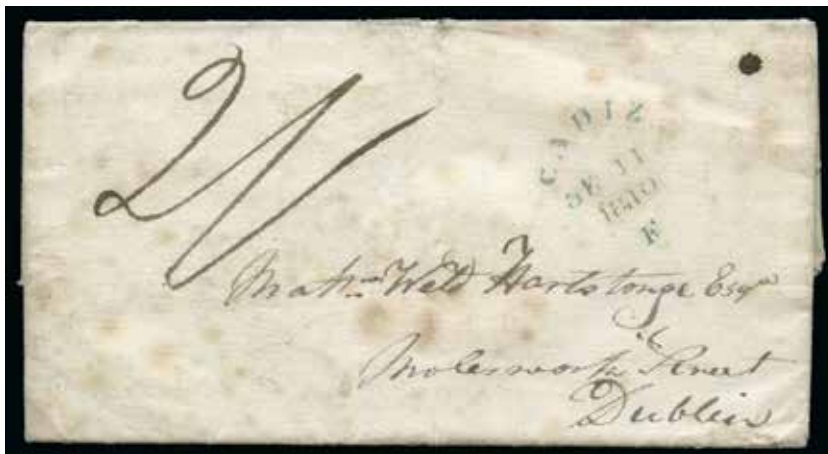 2/
CADIZ
SE 11
1810
F
Mattw Weld Hartstonge Esqr
Molesworth Street
Dublin